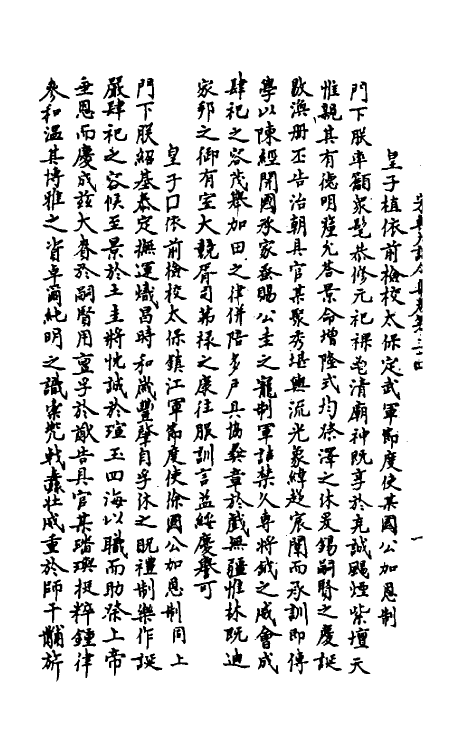 宋大詔令集卷第三十四
一
皇子植依前檢校太保定武軍節度使某國公加恩制
門下朕率籲眾髦恭修元祀祼鬯清廟神既享於克誠颺煙紫壇天
惟親其有德明瑄允答景命增隆式均徐澤之休爰錫嗣賢之慶誕
敭渙冊丕告治朝具官某聚秀堪輿流光象緯趍宸闈而承訓即傳
學以陳經開國承家蚤賜公圭之寵制軍詰禁久專將鉞之威會成
肆祀之容茂舉加田之律併陪多戶具協彝章於戲無疆惟休既迪
家邦之御有室大競胥司茀祿之康往服訓言益綏慶譽可
皇子口依前檢校太保鎮江軍節度使徐國公加恩制 同上
門下朕紹基泰定撫運熾昌時和歲豐肇自孚休之貺禮制樂作誕
嚴肆祀之容候至景於土圭將忱誠於瑄玉四海以職而助祭上帝
垂恩而慶成茲大賚於嗣賢用亶孚於猷告具官某踏璵挺粹鍾律
參和溫其博雅之資卓爾純明之識棨兕戟纛壯威重於師干黼旂